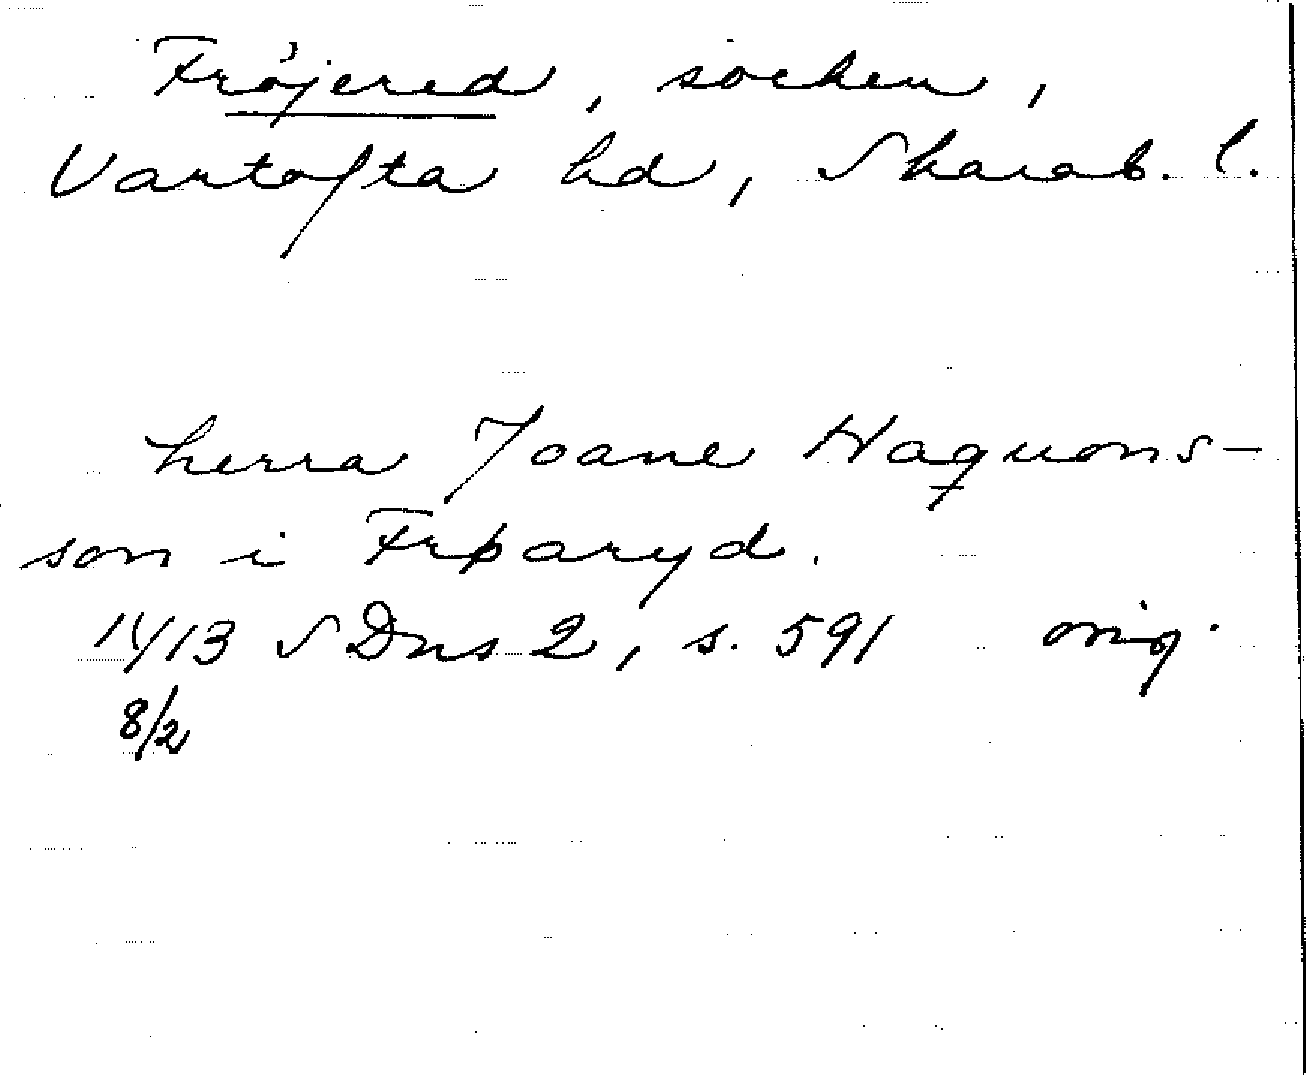 Fröjered, socken,
Vartofta hd, Skarab. l.
herra Joane Haquons-
son i Frøaryd.
1413 SDns 2, s. 591 orig.
8/2